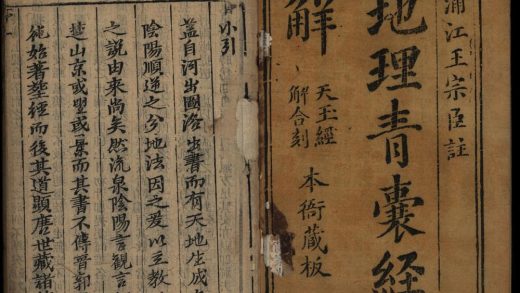 浦江王宗臣註
地理青囊經
解
天玉經
解合刻
本衙藏板
小引
蓋自河出圖洛出書而有天地生成
陰陽順逆之分地法因之爰以立教
之說由來尚矣然流泉陰陽言觀言
楚山京或堂或景而其書不傳晉郭
純始著塟經而後其道顯唐世藏諸